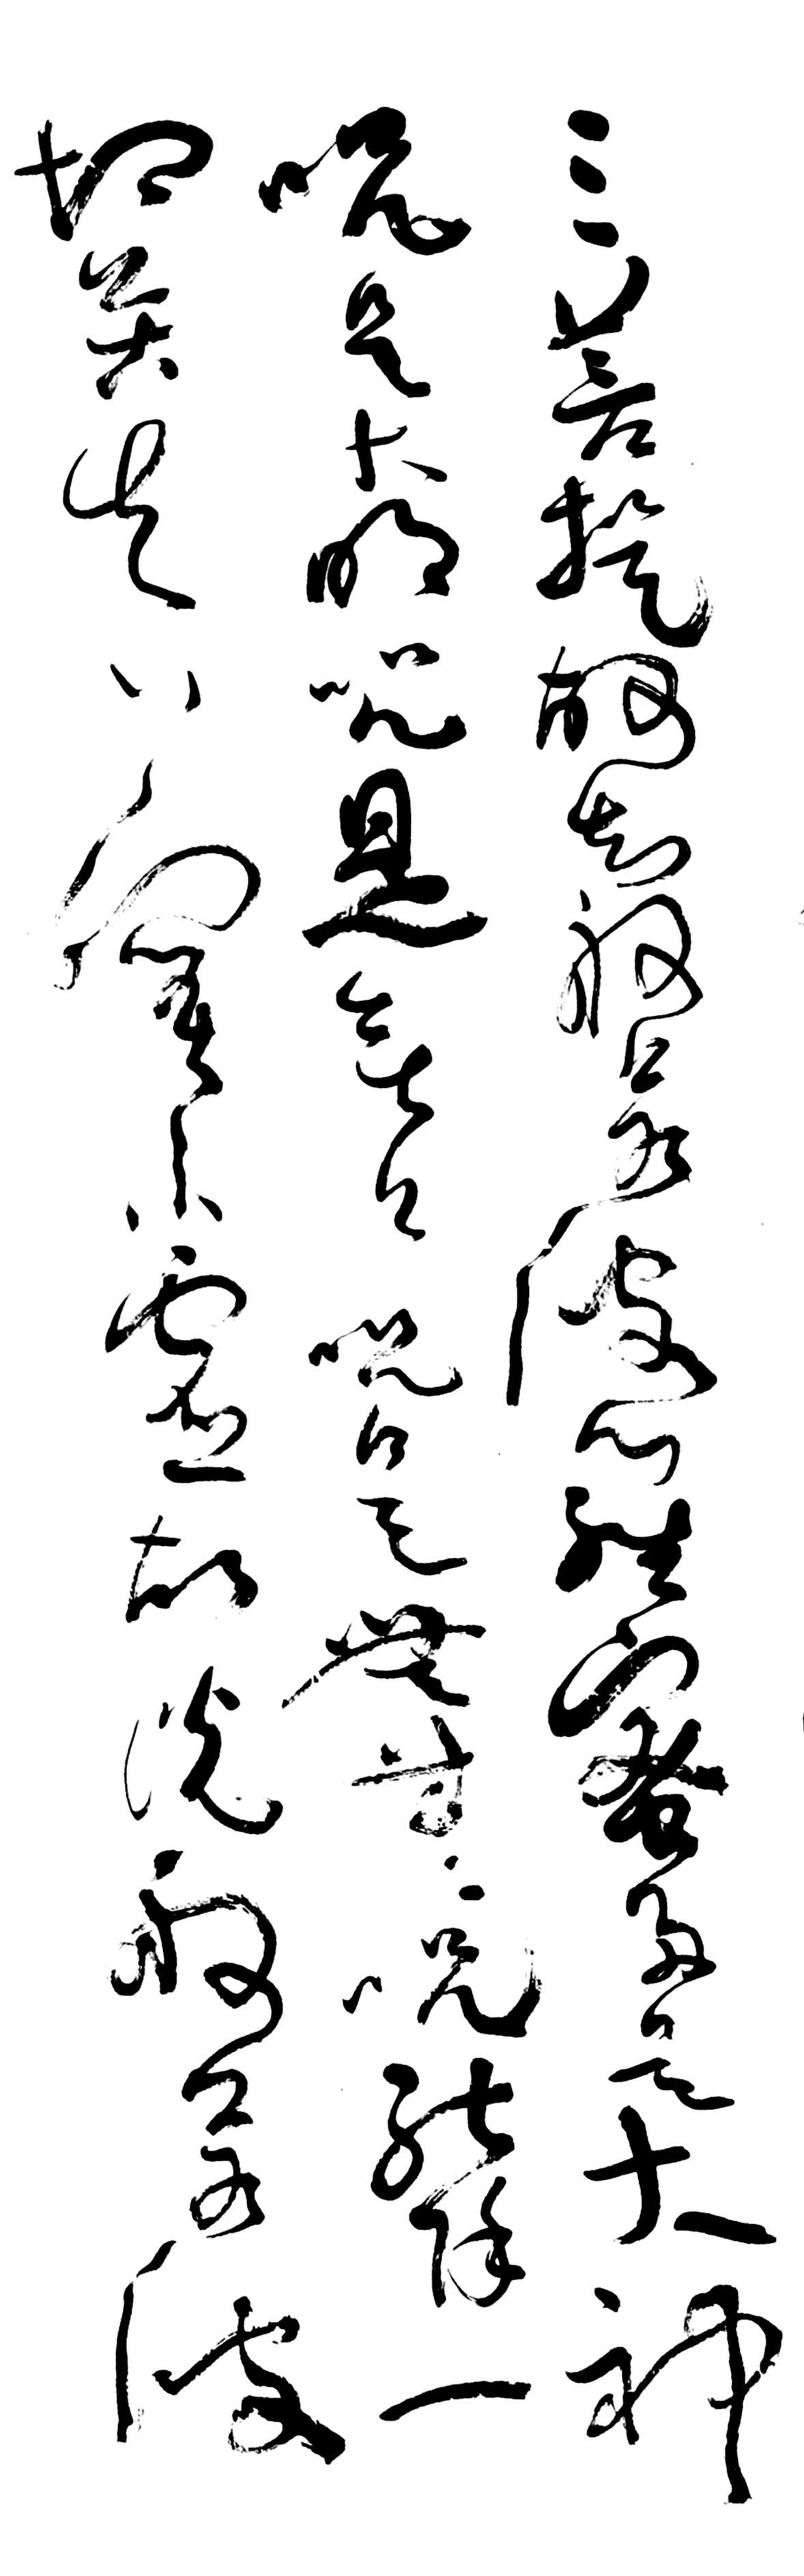 三菩提故知般若波羅蜜多是大神
呪是大明呪是無上呪是無等々呪能除一
切苦真實不虛故説般若波